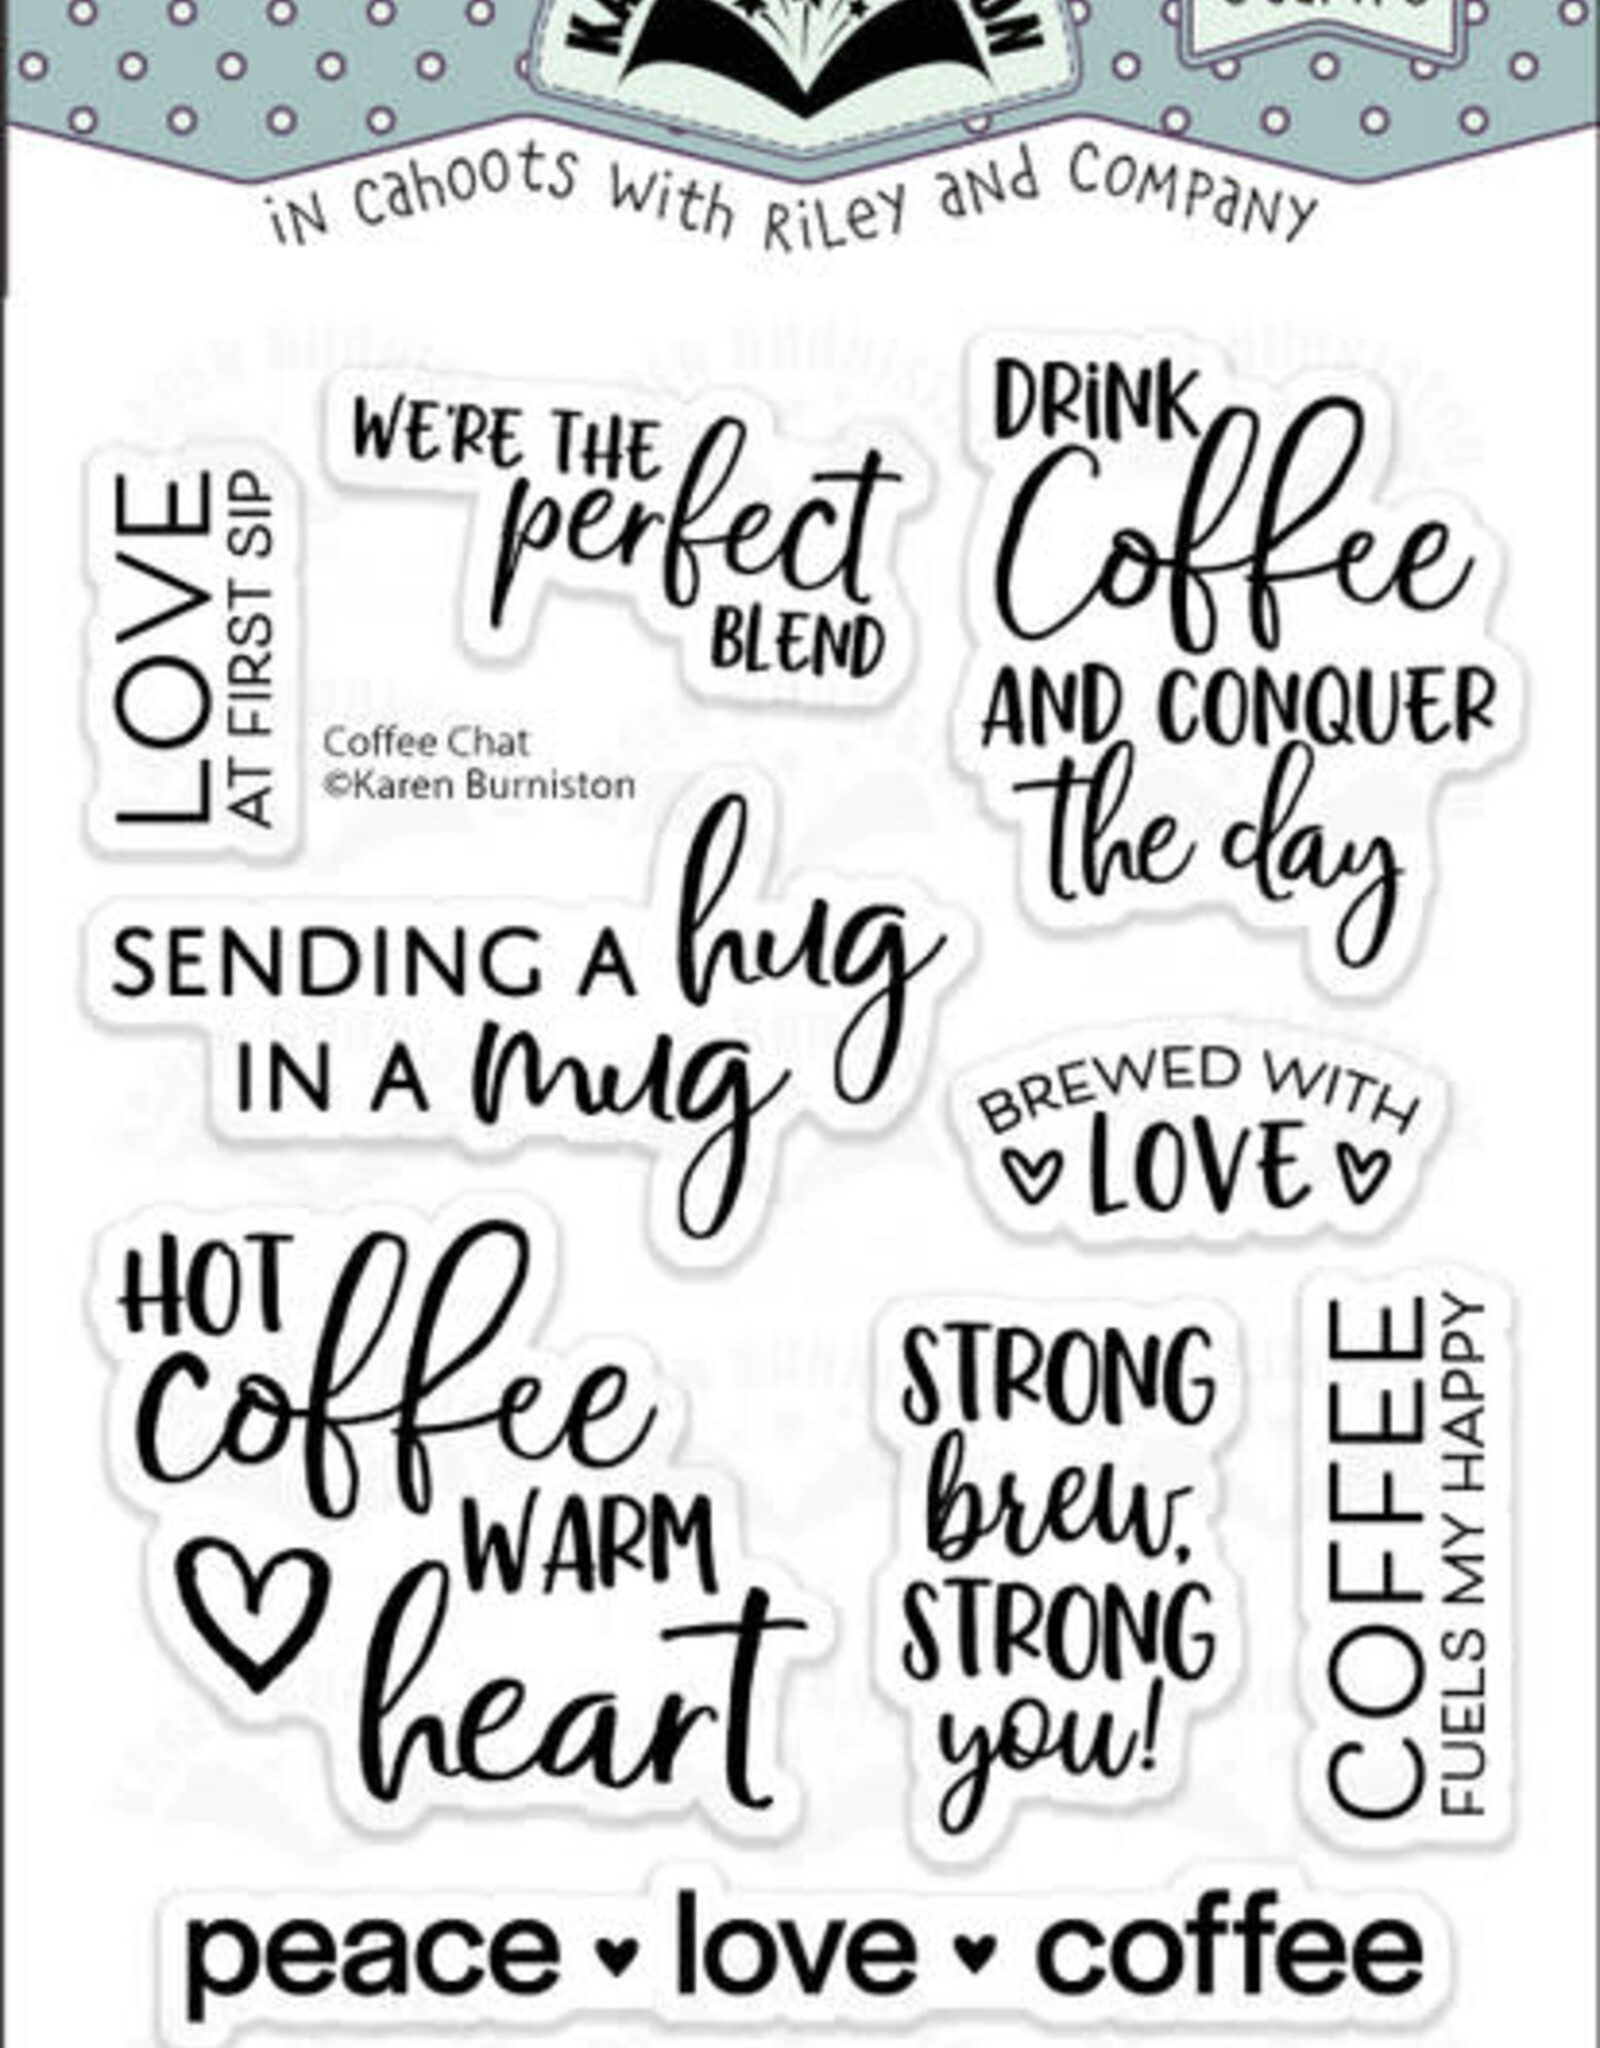 iN cahoots with RiLey aNd COMPaNY
WE'RE THE
perfect
BLEND
DRiNK
Coffee
AND CONQUER
the day
LOVE
AT FIRST SIP
Coffee Chat
©Karen Burniston
SENDING A hug
IN A mug
BREWED WITH
LOVE
HOT
coffee
WARM
heart
STRONG
brew,
STRONG
you!
COFFEE
FUELS MY HAPPY
peace love coffee